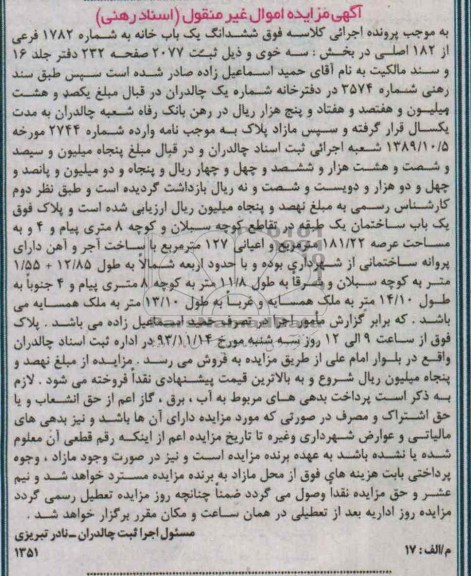 آگهی مزایده اموال غیر منقول (اسناد رهنی)
به موجب پرونده اجرائی کلاسه فوق ششدانگ یک باب خانه به شماره ۱۷۸۲ فرعی
از ۱۸۲ اصلی در بخش : سه خوی و ذیل ثبت ۲۰۷۷ صفحه ۲۳۲ دفتر جلد ۱۶
و سند مالکیت به نام آقای حمید اسماعیل زاده صادر شده است سپس طبق سند
رهنی شماره ۳۵۷۴ در دفترخانه شماره یک چالدران در قبال مبلغ یکصد و هشت
میلیون و هفتصد و هفتاد و پنج هزار ریال در رهن بانک رفاه شعبه چالدران به مدت
یکسال قرار گرفته و سپس مازاد پلاک به موجب نامه وارده شماره ۲۷۴۴ مورخه
۱۳۸۹/۱۰/۵ شعبه اجرائی ثبت اسناد چالدران و در قبال مبلغ پنجاه میلیون و سیصد
و شصت و هشت هزار و ششصد و چهل و چهار ریال و پنجاه و دو میلیون و پانصد و
چهل و دو هزار و دویست و شصت و نه ریال بازداشت گردیده است و طبق نظر دوم
کارشناس رسمی به مبلغ نهصد و پنجاه میلیون ریال ارزیابی شده است و پلاک فوق
یک باب ساختمان یک طبقه در تقاطع کوچه سبلان و کوچه ۸ متری پیام و ۴ و به
مساحت عرصه ۱۸۱/۲۲ مترمربع و اعیانی ۱۲۷ مترمربع با ساخت آجر و آهن دارای
پروانه ساختمانی از شهرداری بوده و با حدود اربعه شمالاً به طول ۱۲/۸۵ + ۱/۵۵
متر به کوچه سبلان و شرقاً به طول ۱۱/۸ متر به کوچه ۸ متری پیام و ۴ جنوبا به
طول ۱۴/۱۰ متر به ملک همسایه و غرباً به طول ۱۳/۱۰ متر به ملک همسایه می
باشد . که برابر گزارش مأمور اجرا در تصرف حمید اسماعیل زاده می باشد . پلاک
فوق از ساعت ۹ الی ۱۲ روز سه شنبه مورخ ۹۳/۱۱/۱۴ در اداره ثبت اسناد چالدران
واقع در بلوار امام علی از طریق مزایده به فروش می رسد . مزایده از مبلغ نهصد و
پنجاه میلیون ریال شروع و به بالاترین قیمت پیشنهادی نقداً فروخته می شود . لازم
به ذکر است پرداخت بدهی های مربوط به آب ، برق ، گاز اعم از حق انشعاب و یا
حق اشتراک و مصرف در صورتی که مورد مزایده دارای آن ها باشد و نیز بدهی های
مالیاتی و عوارض شهرداری وغیره تا تاریخ مزایده اعم از اینکه رقم قطعی آن معلوم
شده یا نشده باشد به عهده برنده مزایده است و نیز در صورت وجود مازاد ، وجوه
پرداختی بابت هزینه های فوق از محل مازاد به برنده مزایده مسترد خواهد شد و نیم
عشر و حق مزایده نقداً وصول می گردد ضمناً چنانچه روز مزایده تعطیل رسمی گردد
مزایده روز اداریه بعد از تعطیلی در همان ساعت و مکان مقرر برگزار خواهد شد .
مسئول اجرا ثبت چالدران – نادر تبریزی
م/الف : ۱۷
۱۳۵۱